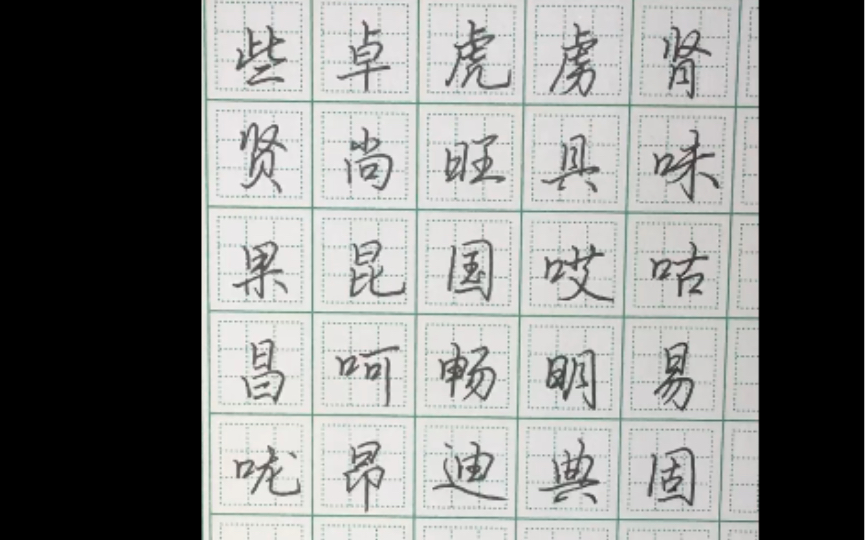 些卓虎虏肾
贤尚旺具味
果昆国哎咕
昌呵畅明易
咙昂迪典固